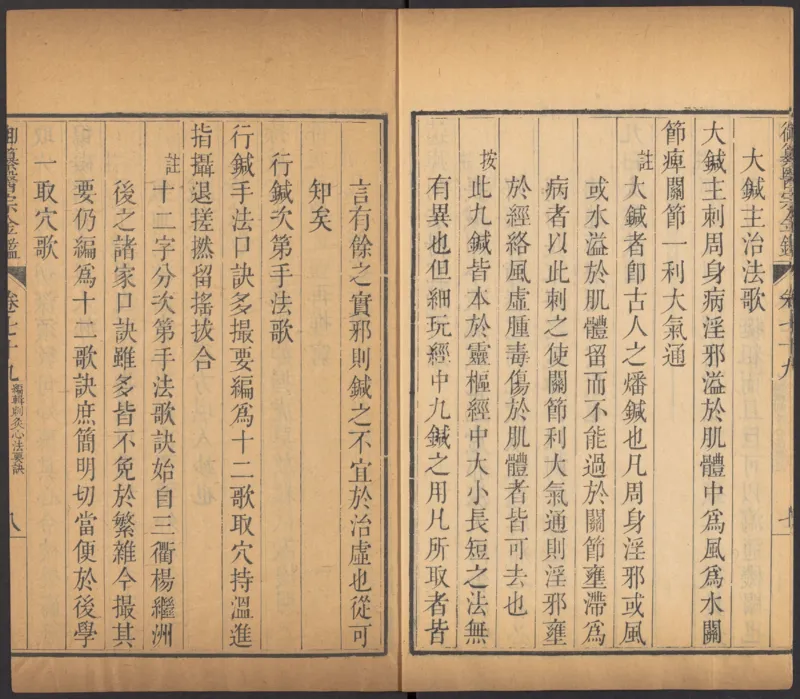 大鍼主治法歌
大鍼主刺周身病淫邪溢於肌體中為風為水關
節痺關節一利大氣通
註大鍼者卽古人之燔鍼也凡周身淫邪或風
或水溢於肌體留而不能過於關節壅滯為
病者以此刺之使關節利大氣通則淫邪壅
於經絡風虛腫毒傷於肌體者皆可去也
按此九鍼皆本於靈樞經中大小長短之法無
有異也但細玩經中九鍼之用凡所取者皆
言有餘之實邪則鍼之不宜於治虛也從可
知矣
行鍼次第手法歌
行鍼手法口訣多撮要編為十二歌取穴持溫進
指攝退搓撚留搖拔合
註十二字分次第手法歌訣始自三衢楊繼洲
後之諸家口訣雖多皆不免於繁雜今撮其
要仍編為十二歌訣庶簡明切當便於後學
一取穴歌
御纂醫宗金鑑 卷七十九 編輯刺灸心法要訣 八